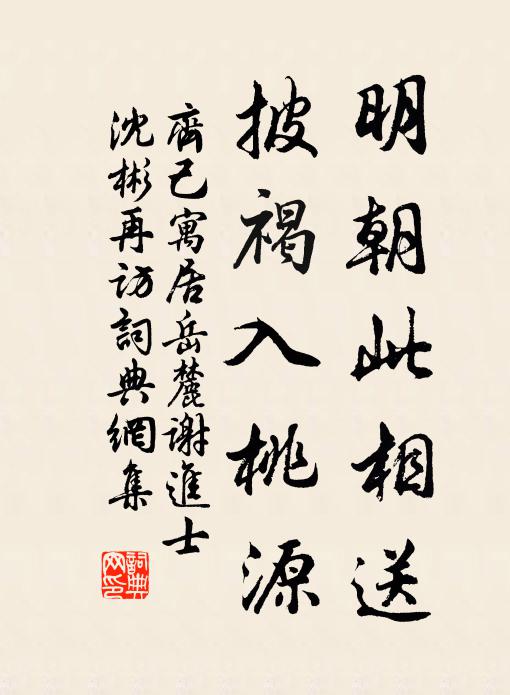 明朝此相送
披褐入桃源
齊己寓居岳麓謝進士
沈彬再訪詞典網集
詞典
网印